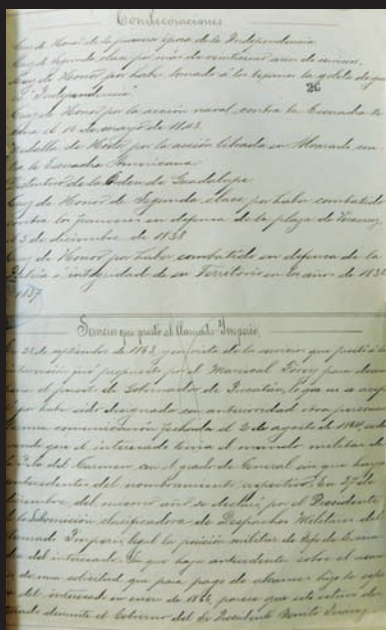 Condecoraciones
Cruz de Honor de la primera época de la Independencia.
Cruz de segunda clase por más de veinticinco años de servicio.
Cruz de Honor por haber tomado a los texanos la goleta de guerra
"Independencia"
26
Cruz de Honor por la acción naval contra la Escuadra
el 16 de mayo de 1843.
Medalla de Honor por la acción librada en Alvarado con
tra la Escuadra Americana.
Distintivo de la Orden de Guadalupe.
Cruz de Honor de segunda clase por haber combatido
contra los franceses en defensa de la plaza de Veracruz,
el 5 de diciembre de 1838
Cruz de Honor por haber combatido en defensa de la
Patria e integridad de su Territorio en los años de 1836
1837
Servicios que prestó al llamado Imperio.
En 28 de septiembre de 1863, y en vista de los servicios que prestó a la
intervención fué propuesto por el Mariscal Forey para
el puesto de Gobernador de Yucatán, lo que no se
por haber sido designada con anterioridad otra persona
una comunicación fechada el 2 de agosto de 1864,
que el interesado tenía el mando militar de
Isla del Carmen, con el grado de General sin que haya
antecedentes del nombramiento respectivo. En 27 de
diciembre del mismo año se declaró por el Presidente
de la Subcomisión clasificadora de Despachos Militares del
llamado Imperio, legal la posición militar de
del interesado. Sin que haya antecedentes sobre el
de una solicitud que para pago de alcances hizo la
del interesado en enero de parece que
durante el Gobierno del Sr Presidente Benito Juárez